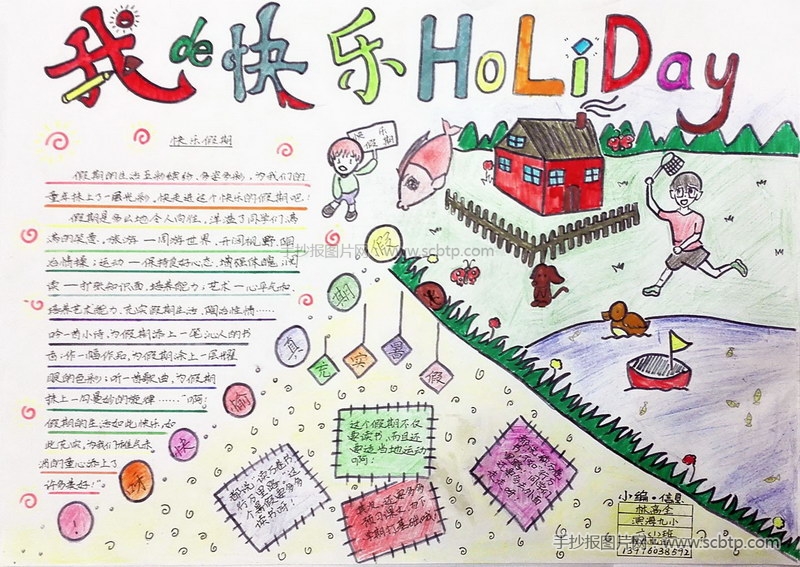 我de快乐HoLiDay
快乐假期
快乐
假期
假期的生活五彩缤纷，多姿多彩，为我们的
童年抹上了一层光彩，快走进这个快乐的假期吧！
假期是多么地令人向往，洋溢了同学们满
满的笑意。旅游—周游世界，开阔视野，陶
冶情操；运动—保持良好心态，增强体魄；阅
读—扩散知识面，培养能力；艺术—心平气和，
培养艺术能力，充实假期生活，陶冶性情……
吟一首小诗，为假期添上一笔沁人的书
色；作一幅作品，为假期添上一层耀
眼的色彩；听一首歌曲，为假期
抹上一层曼妙的旋律……"啊！
假期的生活如此快乐，如
此充实，为我们
的童心添上了
许多美好！"
假
期
来
真
愉
快
呀
！
充
实
暑
假
手抄报图片网 www.scbtp.com
这个假期不仅
要读书，而且还
要适当地运动
啊！
都说：读万卷书
行万里路，这
个暑假要多多
读书呀！
小编·信息
林高全
滨海九小
六(2)班
13996038592
手抄报图片网 www.scbtp.com